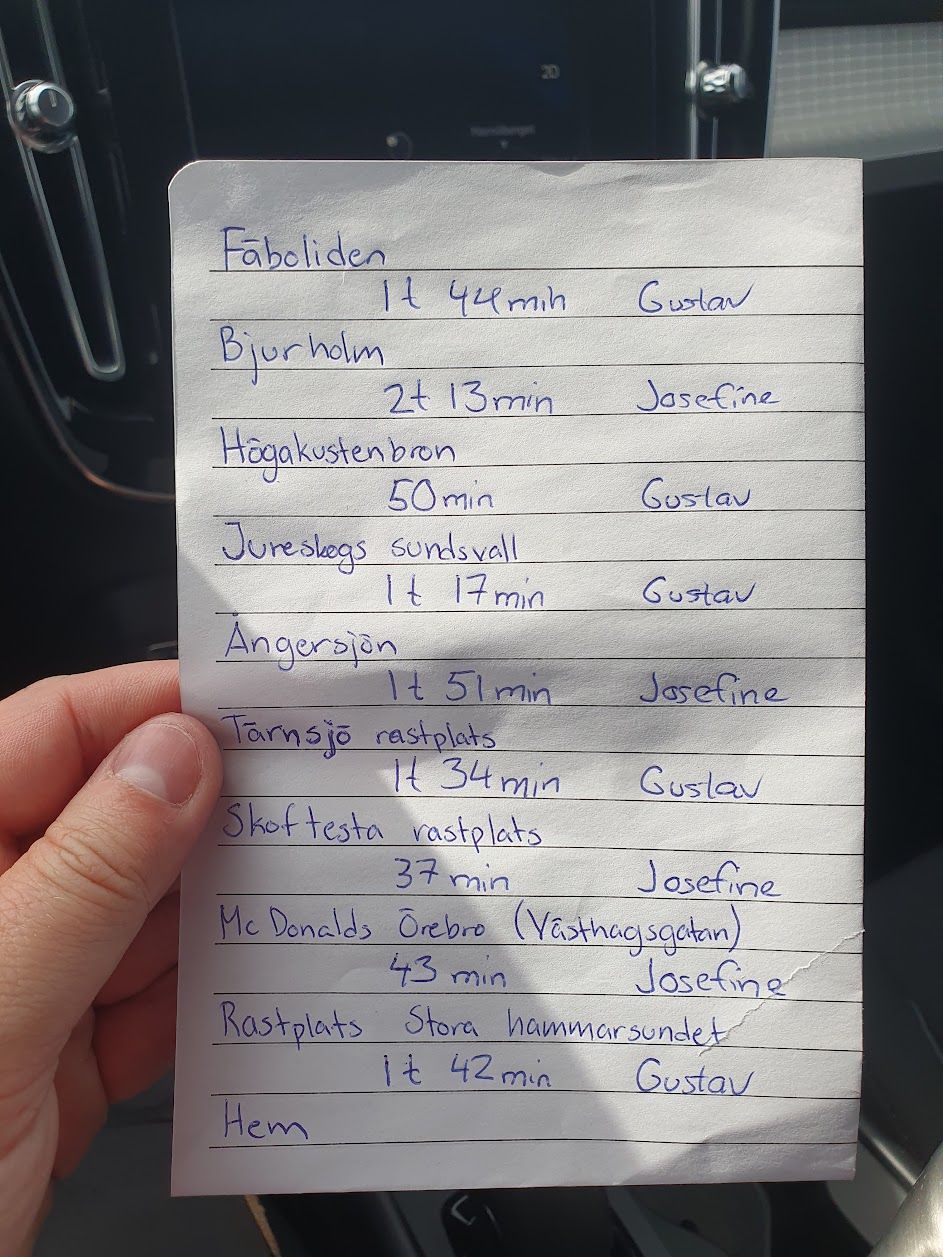 20
Fäboliden
1t 44min Gustav
Bjurholm
2t 13min Josefine
Högakustenbron
50min Gustav
Jureskogs sundsvall
1t 17min Gustav
Ångersjön
1t 51min Josefine
Tärnsjö rastplats
1t 34min Gustav
Skoftesta rastplats
37min Josefine
McDonalds Örebro (Västhagsgatan)
43min Josefine
Rastplats Stora hammarsundet
1t 42min Gustav
Hem